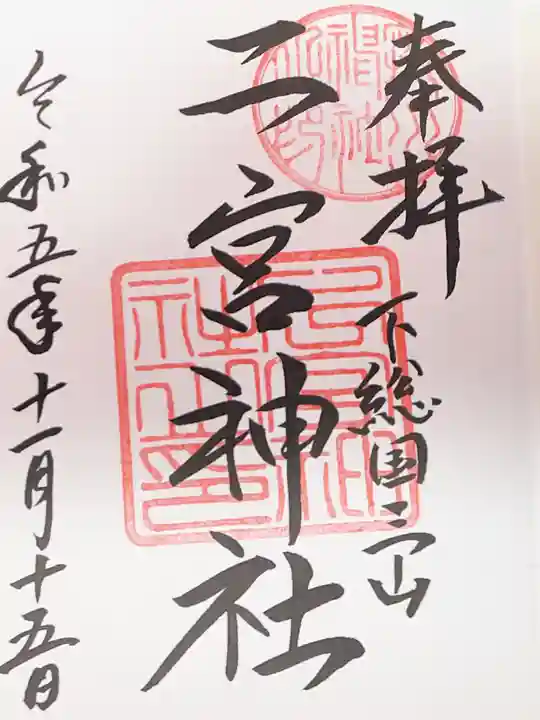 奉拝
下総国三山
二宮神社
令和五年十一月十五日